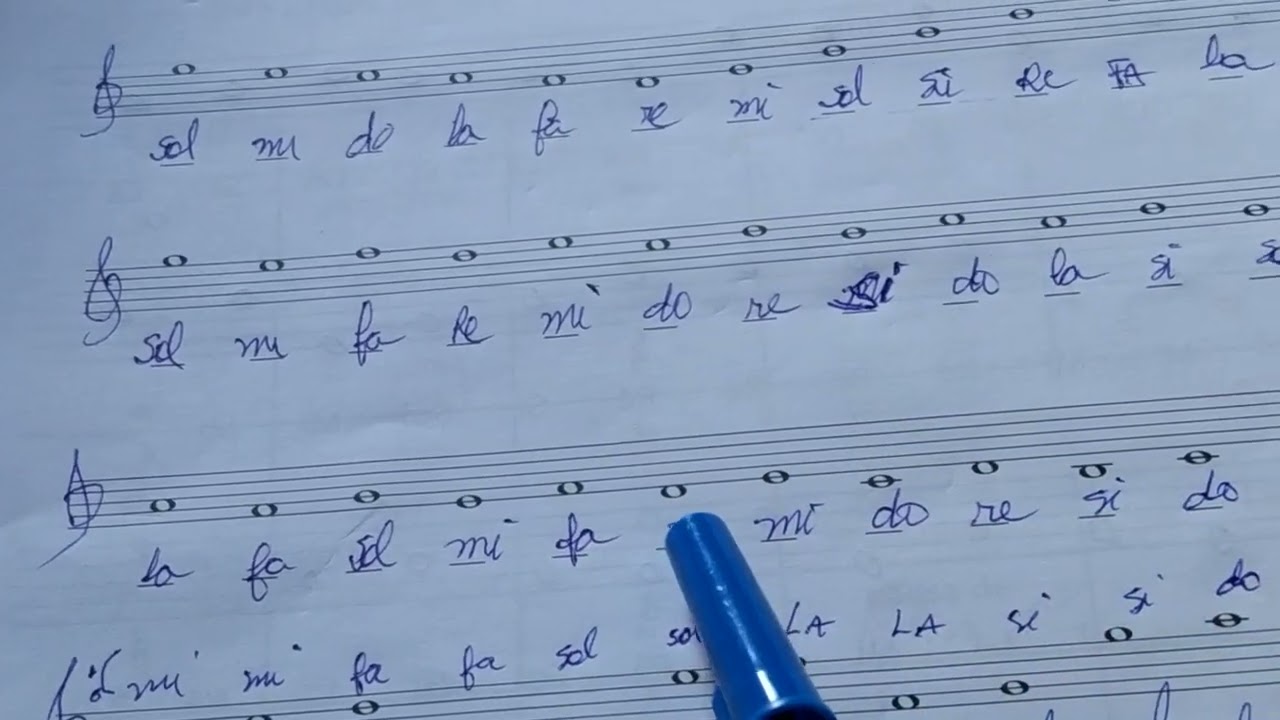 sol mi do la fa re mi sol si Re FA la
sol mi fa Re mi do re si do la si
la fa sol mi fa mi do re si do
mi mi fa fa sol sol LA LA si si do